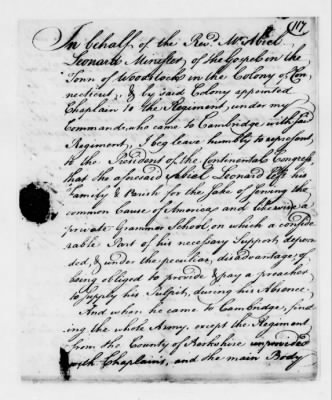 117
In behalf of the Revd. Mr. Abiel
Leonard Minester, of the Gospel in the
Town of Woodstock in the Colony of Con-
necticut, & by said Colony appointed
Chaplain to the Regiment, under my
Command, who came to Cambridge with said
Regiment, I beg leave humbly to represent
to the President of the Continental Congress,
that the aforesaid Abiel Leonard left his
Family & Parish for the sake of serving the
common Cause of America and likewise a
private Grammar School, on which a conside-
rable Part of his necessary Support, depen-
ded, & under the peculiar, disadvantage, of
being obliged to provide & pay a preacher
to supply his Pulpit, during his Absence.
And when he came to Cambridge, find-
ing the whole Army, except the Regiment
from the County of Berkshire unprovided
with Chaplains, and the main Body